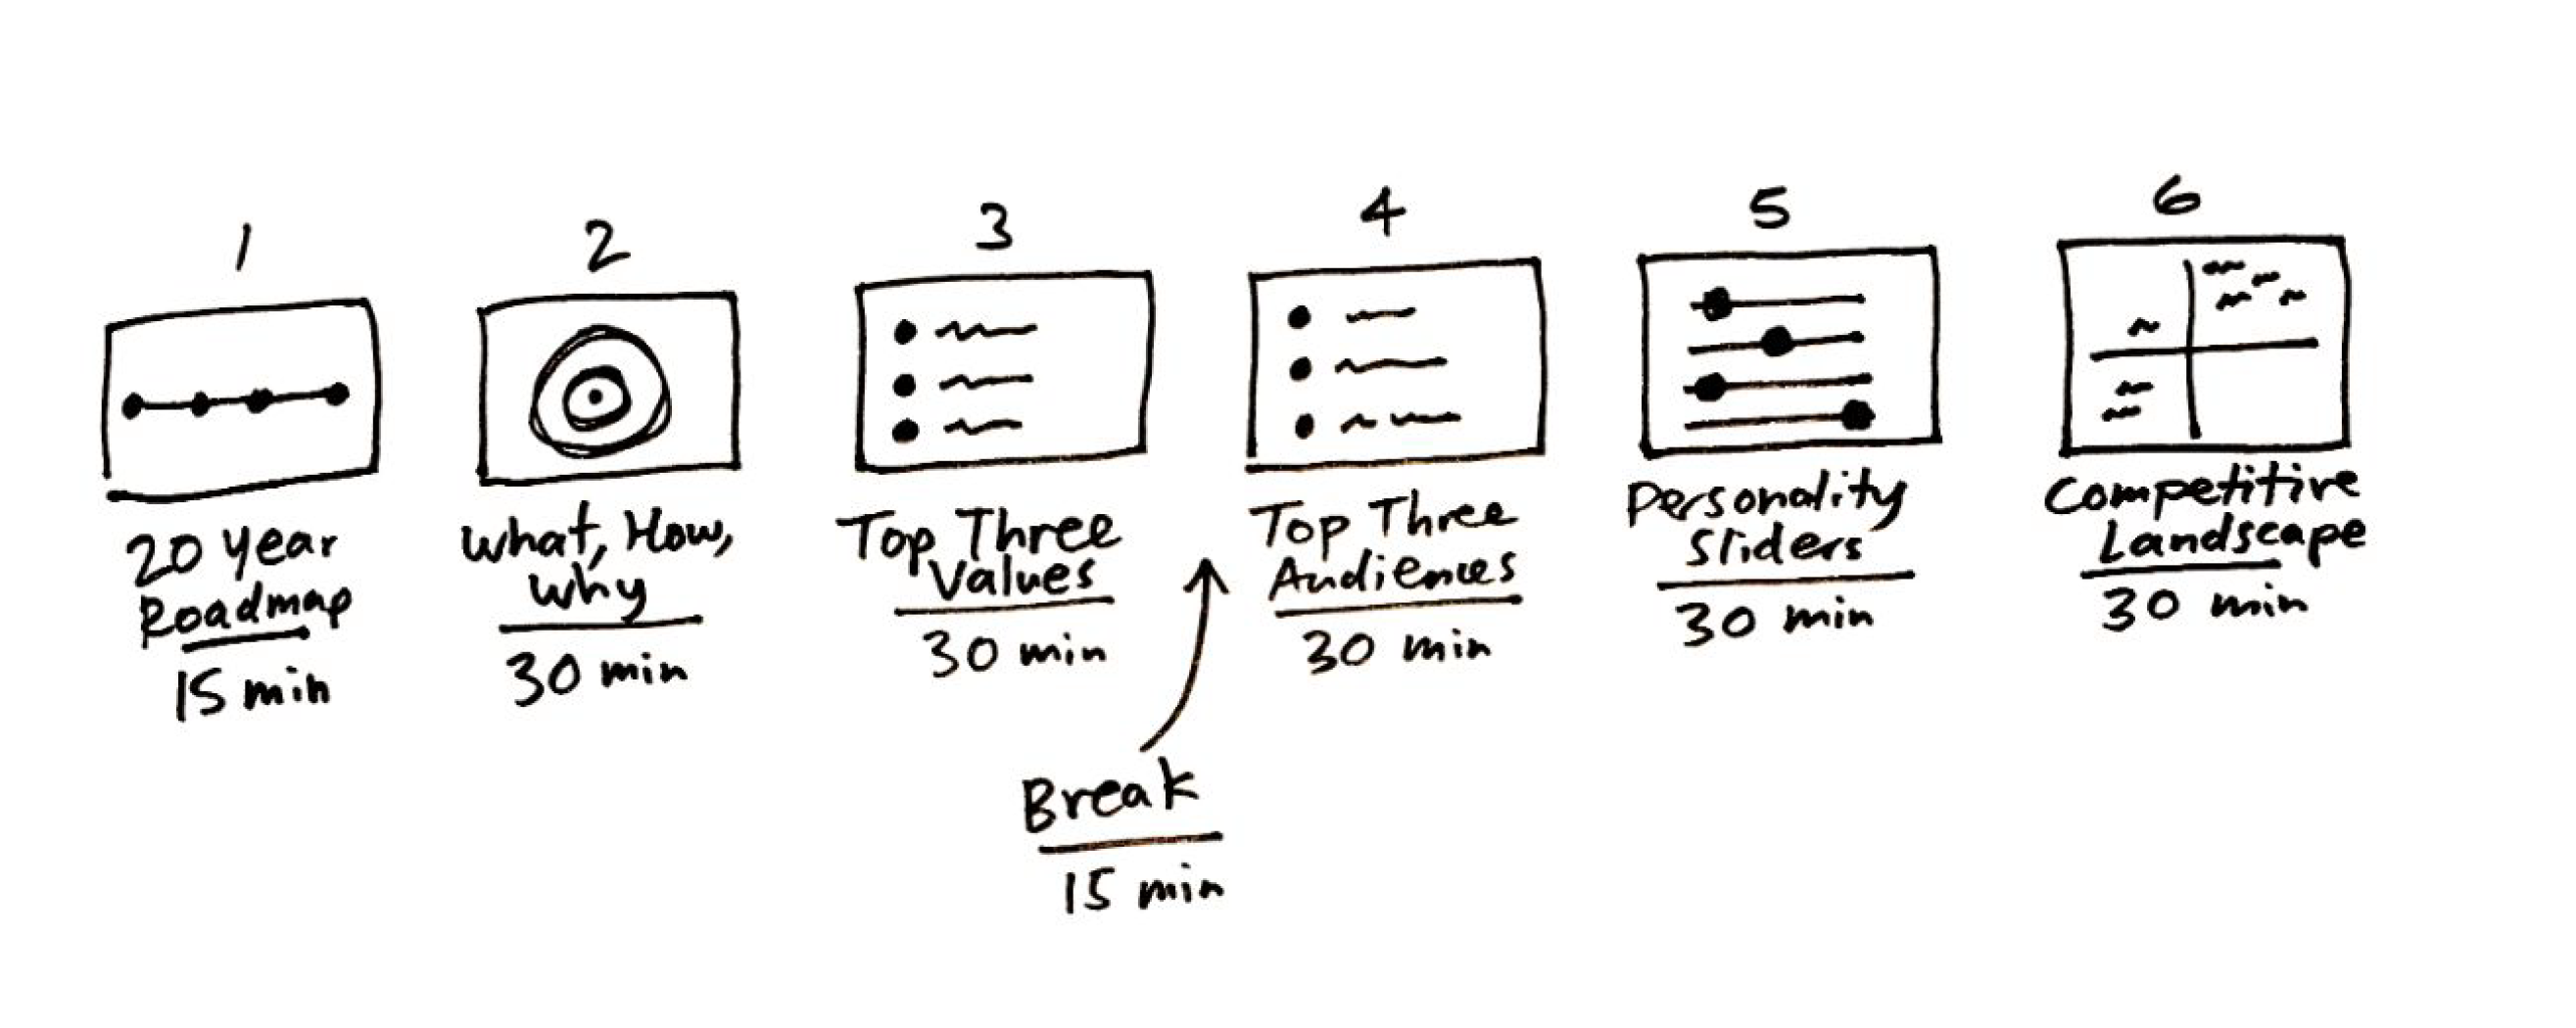 1
20 year
Roadmap
15 min
2
What, How,
Why
30 min
3
Top Three
Values
30 min
Break
15 min
4
Top Three
Audiences
30 min
5
Personality
Sliders
30 min
6
Competitive
Landscape
30 min